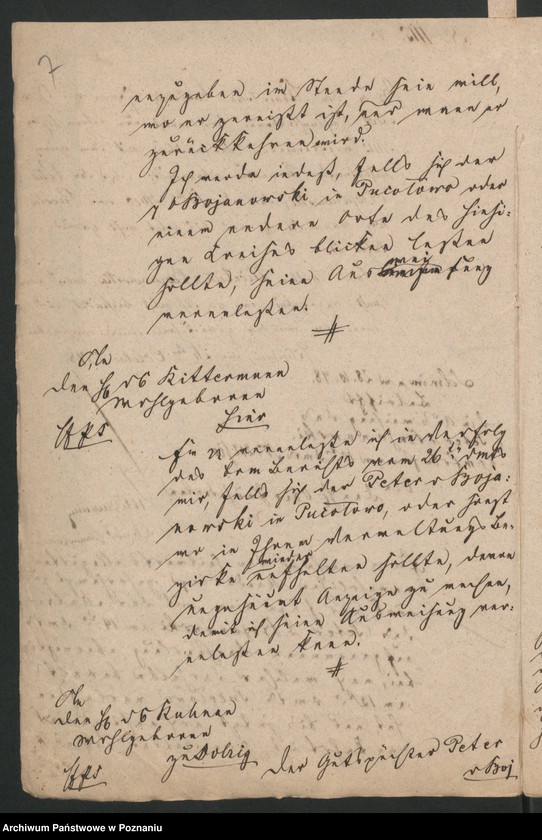 7
anzugeben im Stande sein will,
wo er gereist ist, und wann er
zurückkehren wird.
Ich werde indeß, falls sich der
v Bojanowski in Pucolowo oder
einem andern Orte des hiesi-
gen Kreises blicken lassen
sollte, seine Ausweisung
veranlassen.
An
den H. DC Kittermann
Wohlgeboren
hier
veranlasse ich in Verfolg
des Berichts vom 26t dMts
mir, falls sich der Peter v Boja-
nowski in Pucolowo, oder sonst
wo in Ihrem Verwaltungs Be-
zirke wieder aufhalten sollte, davon
ungesäumt Anzeige zu machen,
damit ich seine Ausweisung ver-
anlassen kann.
An
den H. DC Kuhnau
Wohlgeboren
zu Dolzig
Der Gutspächter Peter
v Boj
Archiwum Państwowe w Poznaniu